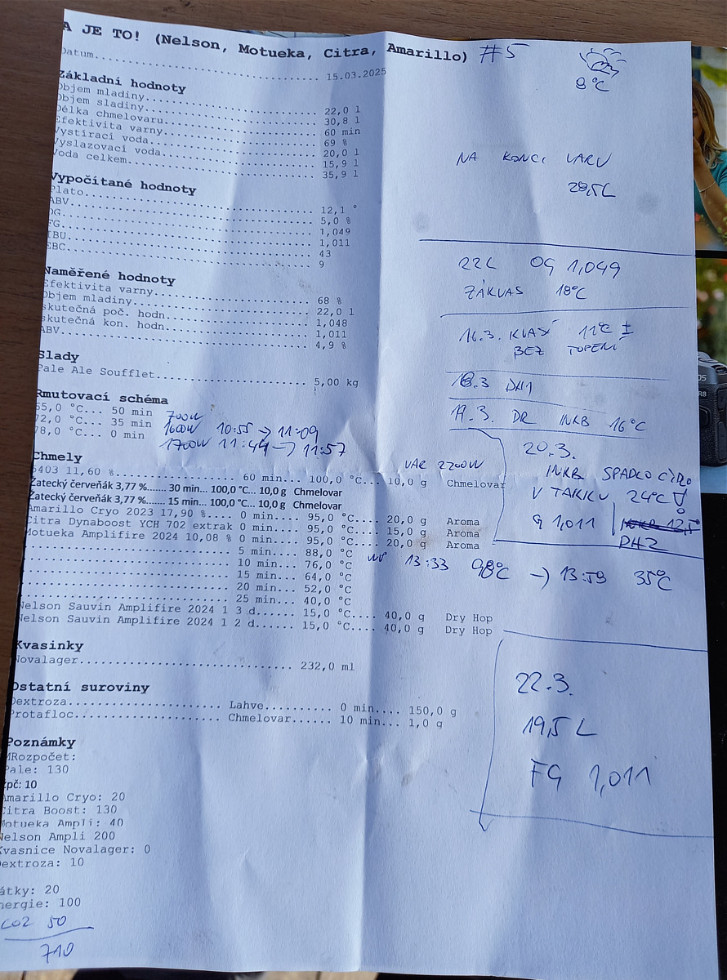 A JE TO! (Nelson, Motueka, Citra, Amarillo) #5
Datum.................................... 15.03.2025
8°C
Základní hodnoty
Objem mladiny............................ 22,0 l
Objem sladiny............................ 30,8 l
Délka chmelovaru......................... 60 min
Efektivita varny......................... 69 %
Vystírací voda........................... 20,0 l
Vyslazovací voda......................... 15,9 l
Voda celkem.............................. 35,9 l
NA KONCI VARU
28,5L
Vypočítané hodnoty
Plato.................................... 12,1 °
ABV...................................... 5,0 %
OG....................................... 1,049
FG....................................... 1,011
IBU...................................... 43
EBC...................................... 9
22L OG 1,049
ZÁKVAS 18°C
Naměřené hodnoty
Efektivita varny......................... 68 %
Objem mladiny............................ 22,0 l
skutečná poč. hodn....................... 1,048
skutečná kon. hodn....................... 1,011
ABV...................................... 4,9 %
16.3. KVASÍ 11°C ±
BEZ TOPENÍ
Slady
Pale Ale Soufflet........................ 5,00 kg
18.3 DH1
19.3. DR INKB 16°C
Rmutovací schéma
65,0 °C... 50 min 700W
72,0 °C... 35 min 1600W 10:55 → 11:09
78,0 °C... 0 min 1700W 11:44 → 11:57
20.3.
INKB SPADLO ČIDLO
V TAKKU 24°C!
G 1,011
DH2
Chmely
VAR 2200W
5403 11,60 %................... 60 min... 100,0 °C... 10,0 g Chmelovar
Žatecký červeňák 3,77 %....... 30 min... 100,0 °C... 10,0 g Chmelovar
Žatecký červeňák 3,77 %....... 15 min... 100,0 °C... 10,0 g Chmelovar
Amarillo Cryo 2023 17,90 %... 0 min.... 95,0 °C.... 20,0 g Aroma
Citra Dynaboost YCH 702 extrak 0 min.... 95,0 °C.... 15,0 g Aroma
Motueka Amplifire 2024 10,08 % 0 min.... 95,0 °C.... 20,0 g Aroma
............................... 5 min.... 88,0 °C
............................... 10 min... 76,0 °C 13:33 98°C → 13:59 35°C
............................... 15 min... 64,0 °C
............................... 20 min... 52,0 °C
............................... 25 min... 40,0 °C
Nelson Sauvin Amplifire 2024 1 3 d...... 15,0 °C.... 40,0 g Dry Hop
Nelson Sauvin Amplifire 2024 1 2 d...... 15,0 °C.... 40,0 g Dry Hop
Kvasinky
Novalager................................ 232,0 ml
22.3.
19,5 L
FG 1,011
Ostatní suroviny
Dextroza....................... Lahve.......... 0 min.... 150,0 g
Protafloc...................... Chmelovar...... 10 min... 1,0 g
Poznámky
MRozpočet:
Pale: 130
žpč: 10
Amarillo Cryo: 20
Citra Boost: 130
Motueka Ampli: 40
Nelson Ampli 200
Kvasnice Novalager: 0
Dextroza: 10
átky: 20
nergie: 100
CO2 50
710